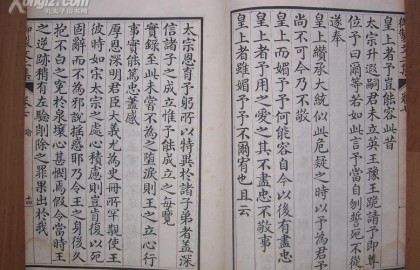 皇上者予豈能容此昔
太宗升遐嗣君未立英王豫王跪請予即尊
位予曰爾等若如此言予當自刎誓死不從
遂奉
皇上纘承大統似此危疑之時以予為君予
尚不可今乃不敬
皇上而媚予予何能容自今以後有盡忠
皇上者予用之愛之其不盡忠不敬事
皇上者雖媚予予不爾宥也且云
太宗恩育予躬所以特異於諸子弟者蓋深
信諸子之成立惟予能成立之每覽
實錄至此未嘗不為之墮淚則王之立心行
事實能篤忠藎感
厚恩深明君臣大義尤為史冊所罕觀使王
彼時如宋太宗之處心積慮則豈肯復以死
固辭而不為邪說搖惑耶乃令王之身後久
抱不白之冤於泉壤心甚憫焉假令當時王
之逆跡稍有左驗削除之罪果出於我